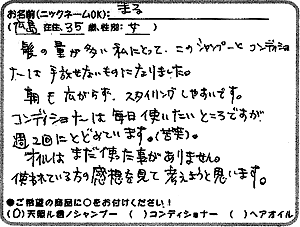 お名前(ニックネームOK): まる
(広島 在住、35 歳、性別: 女 )
髪の量が多い私にとって、このシャンプーとコンディショ
ナーは手放せないものになりました。
朝も広がらず、スタイリングしやすいです。
コンディショナーは毎日使いたいところですが
週2回にとどめています。(苦笑)。
オイルはまだ使った事がありません。
使われている方の感想を見て考えようと思います。
●ご希望の商品に○をお付けください!
(○)天照ル碧ノシャンプー ( )コンディショナー ( )ヘアオイル